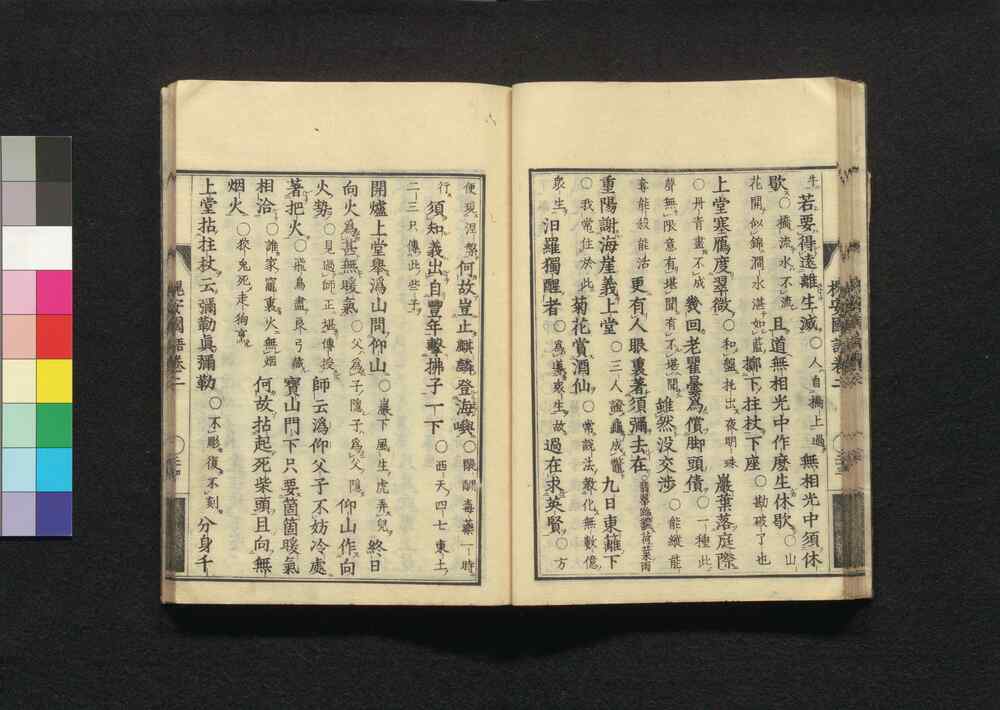 牛 若要得遠離生滅 ○人自橋上過 無相光中須休
歇 ○橋流水不流 且道無相光中作麼生休歇 ○山
花開似錦澗水湛如藍 擲下拄杖下座 ○勘破了也
上堂塞鴈度翠微 ○和盤托出夜明珠 巖葉落庭際
○丹青畫不成 幾回老瞿曇爲償脚頭債 ○一種此
聲無限意有堪聞有不堪聞 雖然没交渉 ○能縱能
奪能殺能活 更有人眼裏著須彌去在 荷葉雨
重陽謝海崖義上堂 ○三人證龜成鼈 九日東籬下
○我常住於此 菊花賞酒仙 ○常説法教化無數億
衆生 汨羅獨醒者 ○爲衆生故 過在求英賢 ○方
便現涅槃 何故豈止麒麟登海嶼 ○醍醐毒藥一時
行 須知義出自豐年擊拂子一下 ○西天四七東土
二三只傳此些子
開爐上堂擧潙山問仰山 ○巖下風生虎弄兒 終日
向火爲甚無暖氣 ○父爲子隱子爲父隱 仰山作向
火勢 ○見過師正堪傳授 師云潙仰父子不妨冷處
著把火 ○飛鳥盡良弓藏 寶山門下只要箇箇暖氣
相洽 ○誰家竈裏火無烟 何故拈起死柴頭且向無
烟火 ○狡兔死走狗烹
上堂拈拄杖云彌勒眞彌勒 ○不彫復不刻 分身千
槐安國語卷二
槐安國語卷二